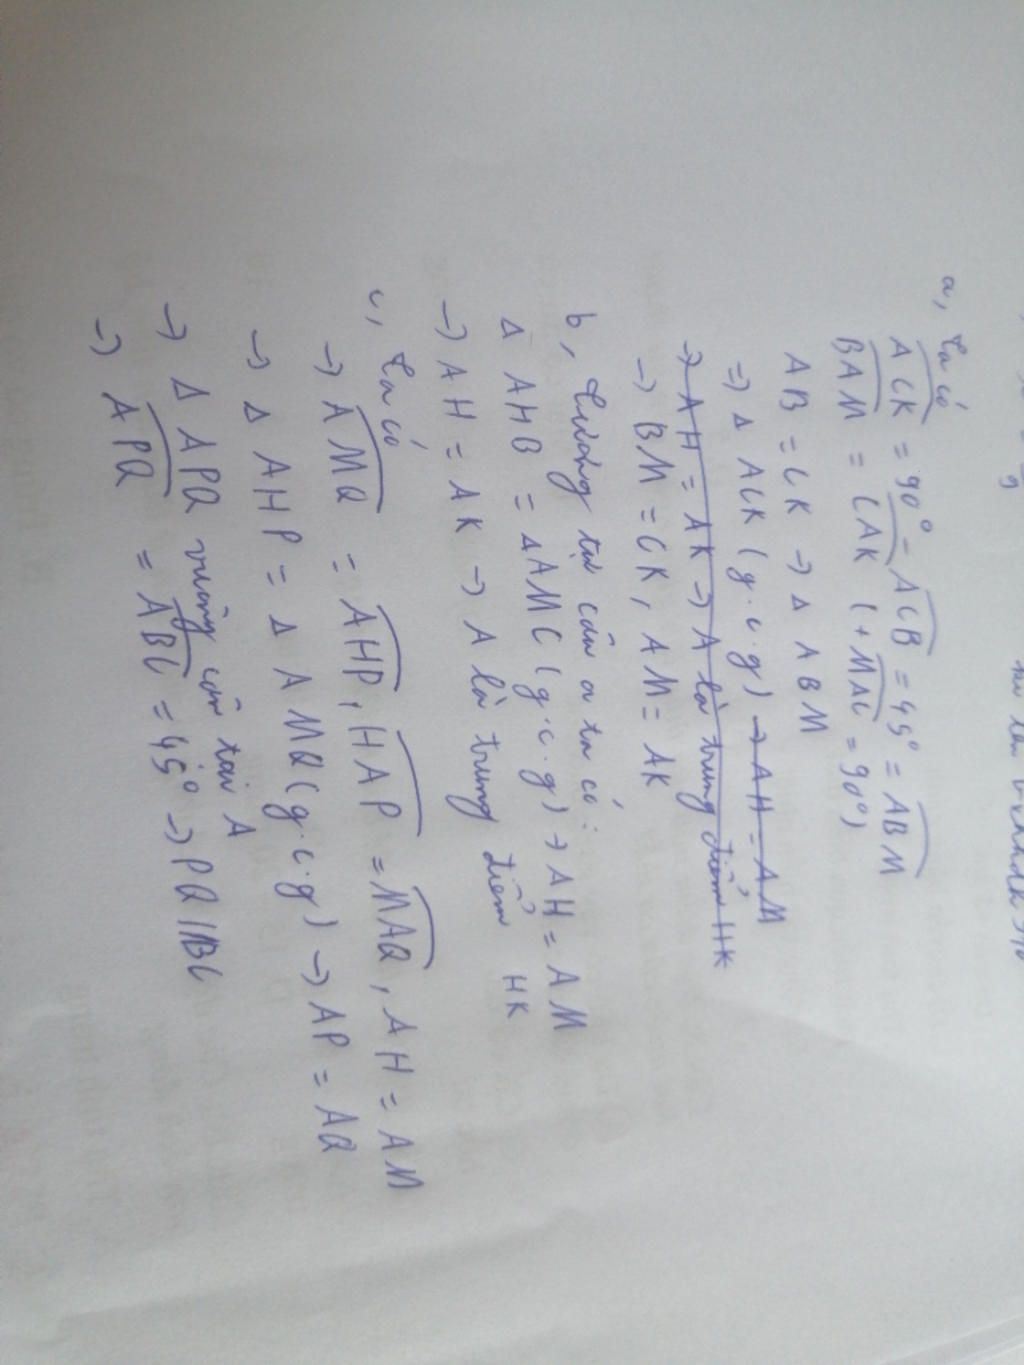 a, Ta có
ACK = 90° - ACB = 45° = ABM
BAM = CAK (+MAC = 90°)
AB = CK → Δ ABM
=> Δ ACK (g.c.g) → AH = AM
→ AH = AK → A là trung điểm HK
→ BM = CK, AM = AK
b, Tương tự câu a ta có:
Δ AHB = ΔAMC (g.c.g) → AH = AM
→ AH = AK → A là trung điểm HK
c, Ta có
→ AMQ = AHP, HAP = MAQ, AH = AM
→ Δ AHP = Δ AMQ (g.c.g) → AP = AQ
→ Δ APQ vuông cân tại A
→ APQ = ABC = 45° → PQ//BC